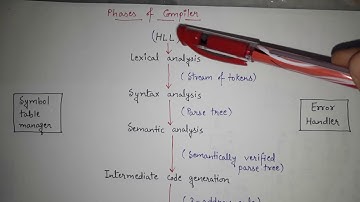 Phases of Compiler
(HLL)
Lexical analysis
(Stream of tokens)
Syntax analysis
(Parse tree)
Semantic analysis
(Semantically verified
parse tree)
Intermediate code generation
Symbol
table
manager
Error
Handler